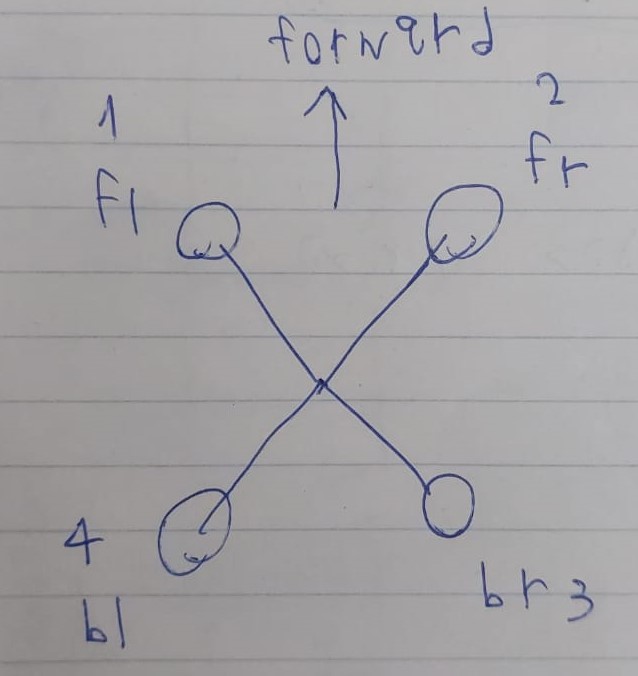 forward
1
fl
2
fr
4
bl
br 3